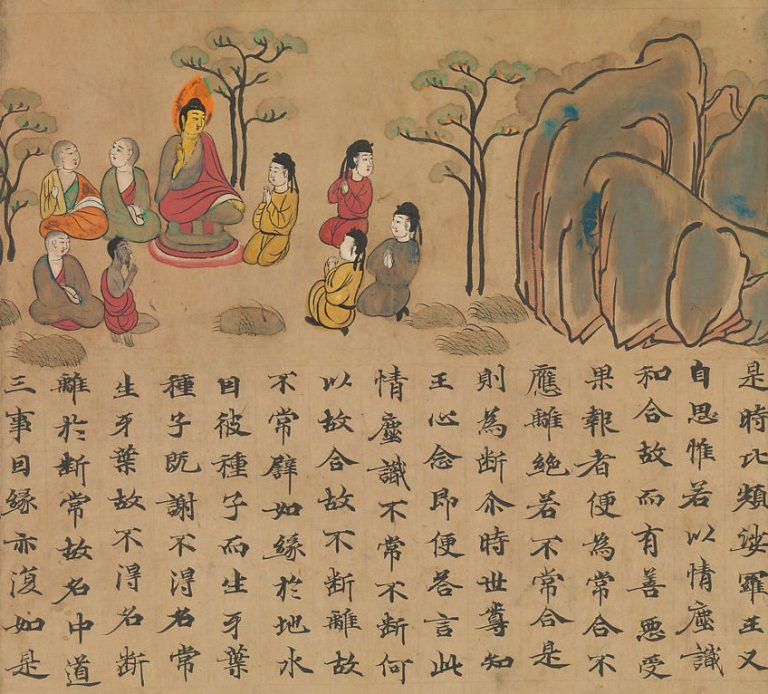 是時比頻娑羅王又
自思惟若以情塵識
和合故而有善悪受
果報者便為常合不
應離絕若不常合是
則為断尒時世尊知
王心念即便荅言此
情塵識不常不断何
以故合故不断離故
不常譬如緣於地水
因彼種子而生牙葉
種子既謝不得名常
生牙葉故不得名断
離於断常故名中道
三事因緣亦復如是